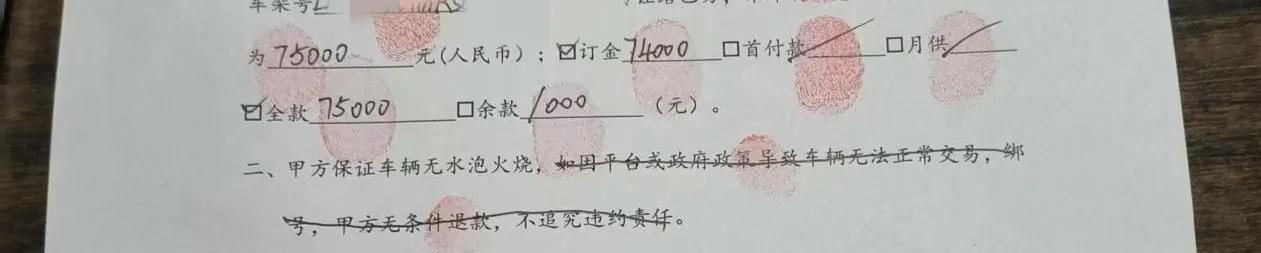 车架号L
为75000元(人民币)；☑订金74000 □首付款 □月供
☑全款75000 □余款1000（元）。
二、甲方保证车辆无水泡火烧，如因平台或政府政策导致车辆无法正常交易，绑
号，甲方无条件退款，不追究违约责任。